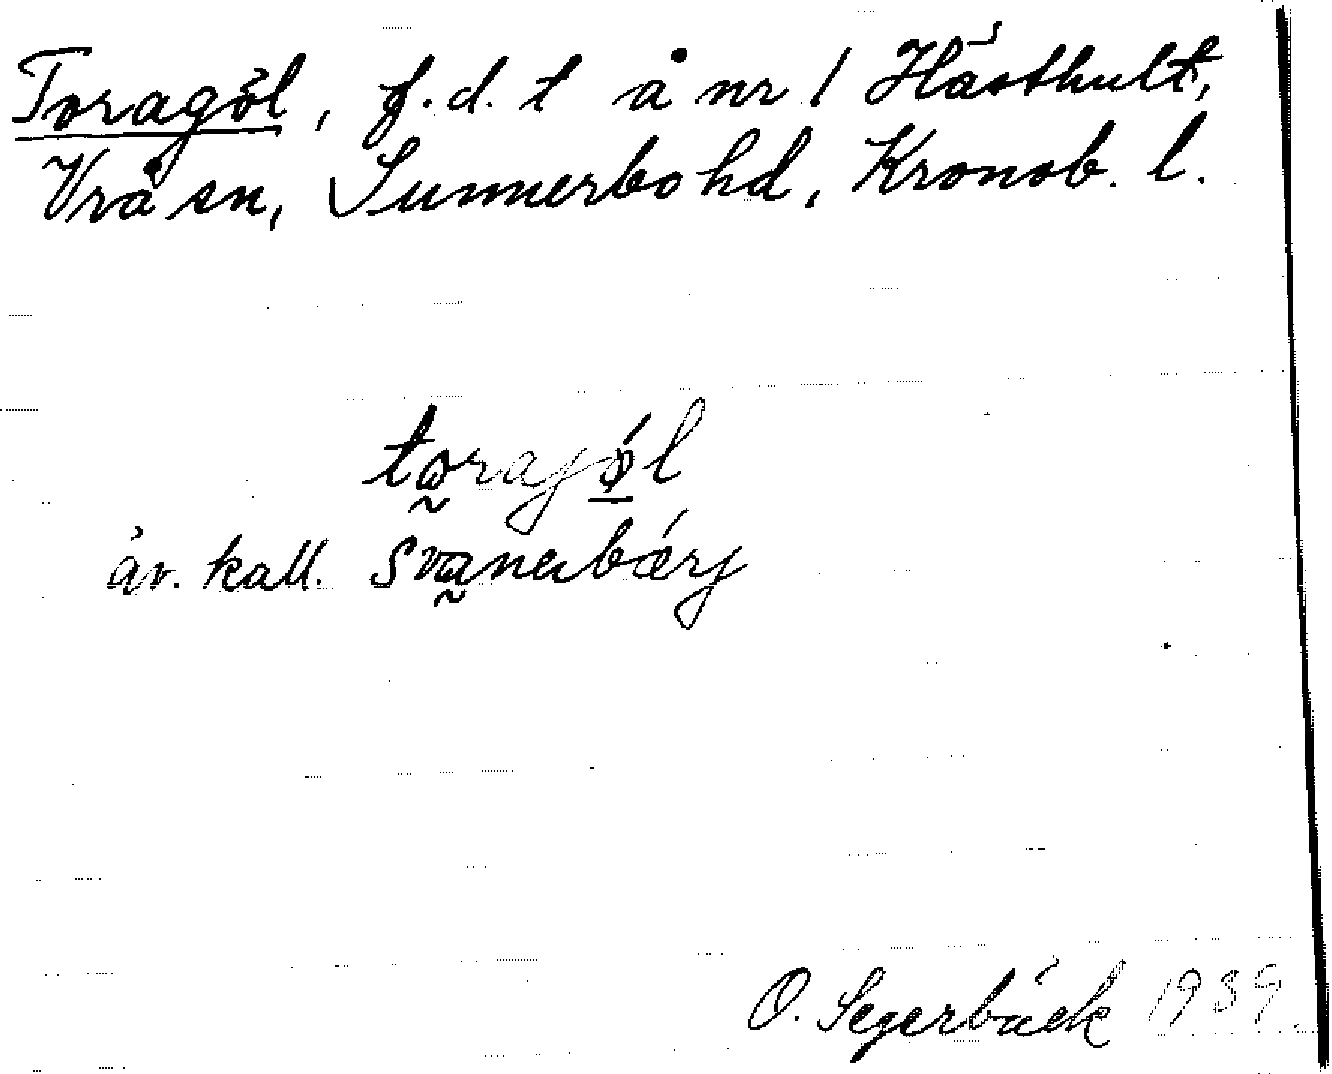 Toragöl, f.d. t å nr 1 Hästhult,
Vrå sn, Sunnerbo hd, Kronob. l.
toragö́l
äv. kall. Svanabǽrj
O. Segerbäck 1939